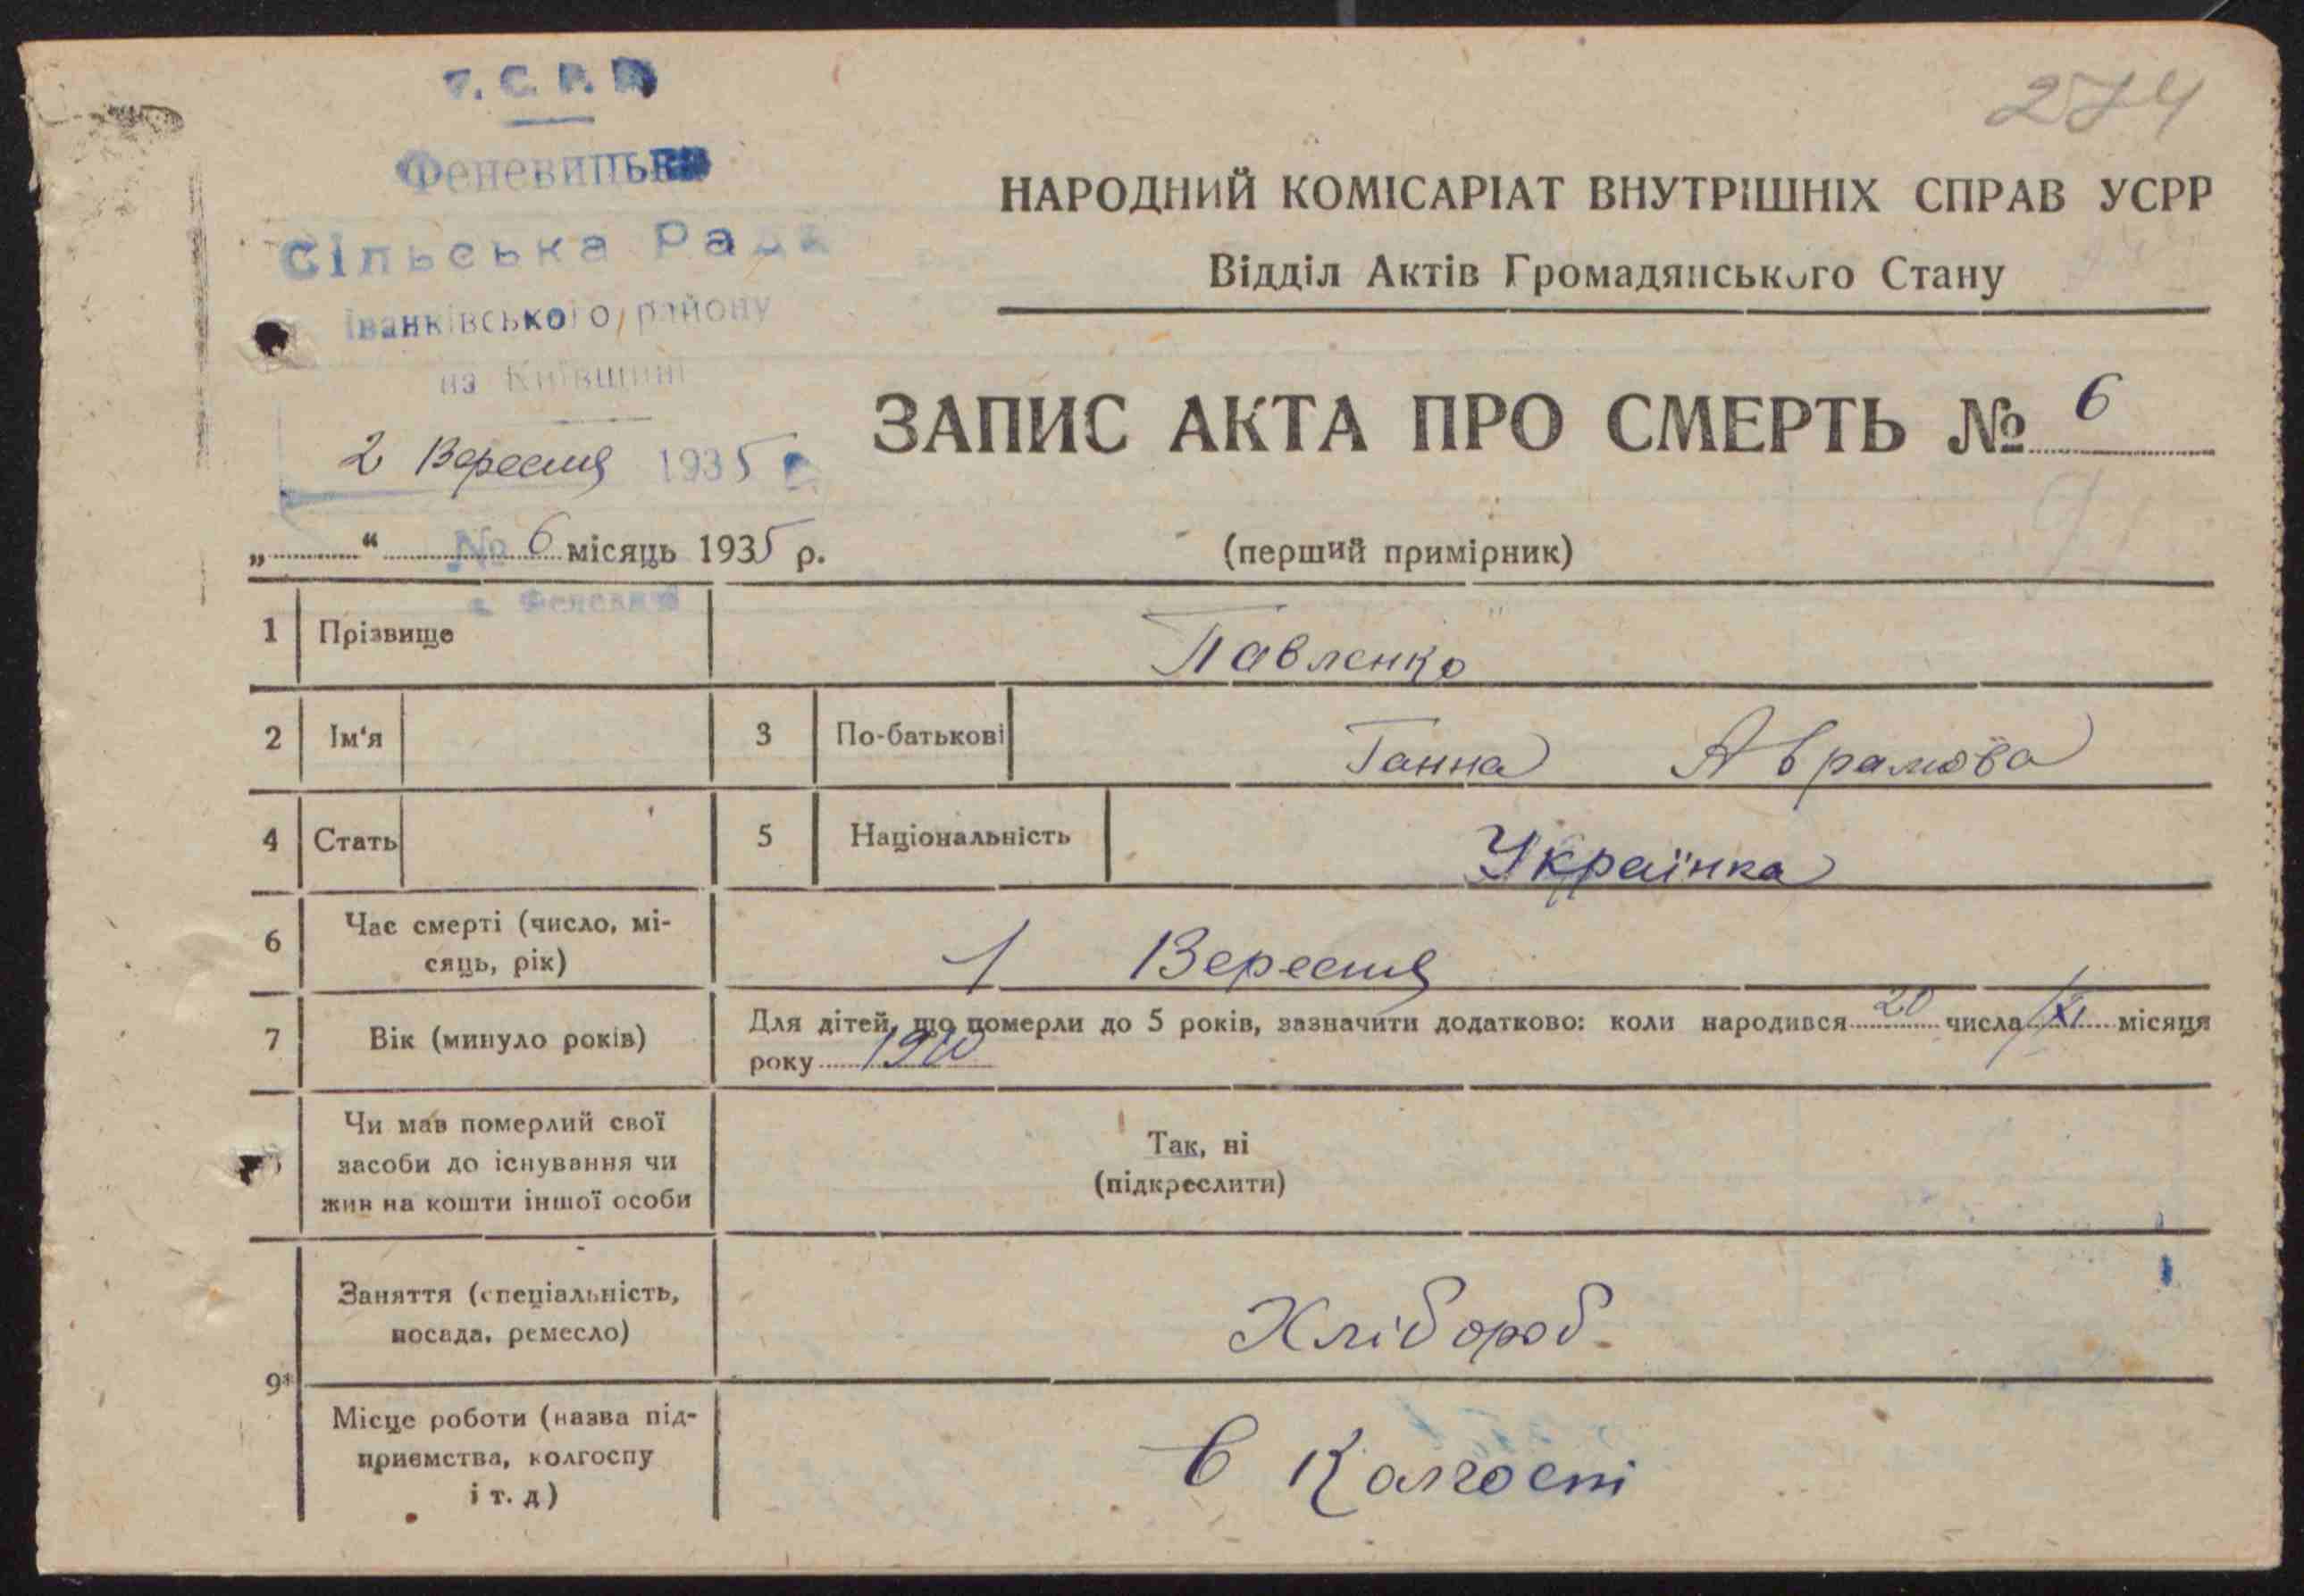 У.С.Р.Р.
274
Феневицька
Сільська Рада
Іванківського району
на Київщині
2 Вересня 1935 р.
№ 6
с. Феневичі
НАРОДНИЙ КОМІСАРІАТ ВНУТРІШНІХ СПРАВ УСРР
Відділ Актів Громадянського Стану
ЗАПИС АКТА ПРО СМЕРТЬ № 6
„ “ місяць 1935 р.
(перший примірник)
1 Прізвище Павленко
2 Ім'я 3 По-батькові Ганна Аврамова
4 Стать 5 Національність Українка
6 Час смерті (число, мі-
сяць, рік) 1 Вересня
7 Вік (минуло років) Для дітей, що померли до 5 років, зазначити додатково: коли народився 20 числа XI місяця
року
Чи мав померлий свої
засоби до існування чи
жив на кошти іншої особи
Так, ні
(підкреслити)
9*
Заняття (спеціальність,
посада, ремесло) Хлібороб
Місце роботи (назва під-
приємства, колгоспу
і т. д) В Колгоспі